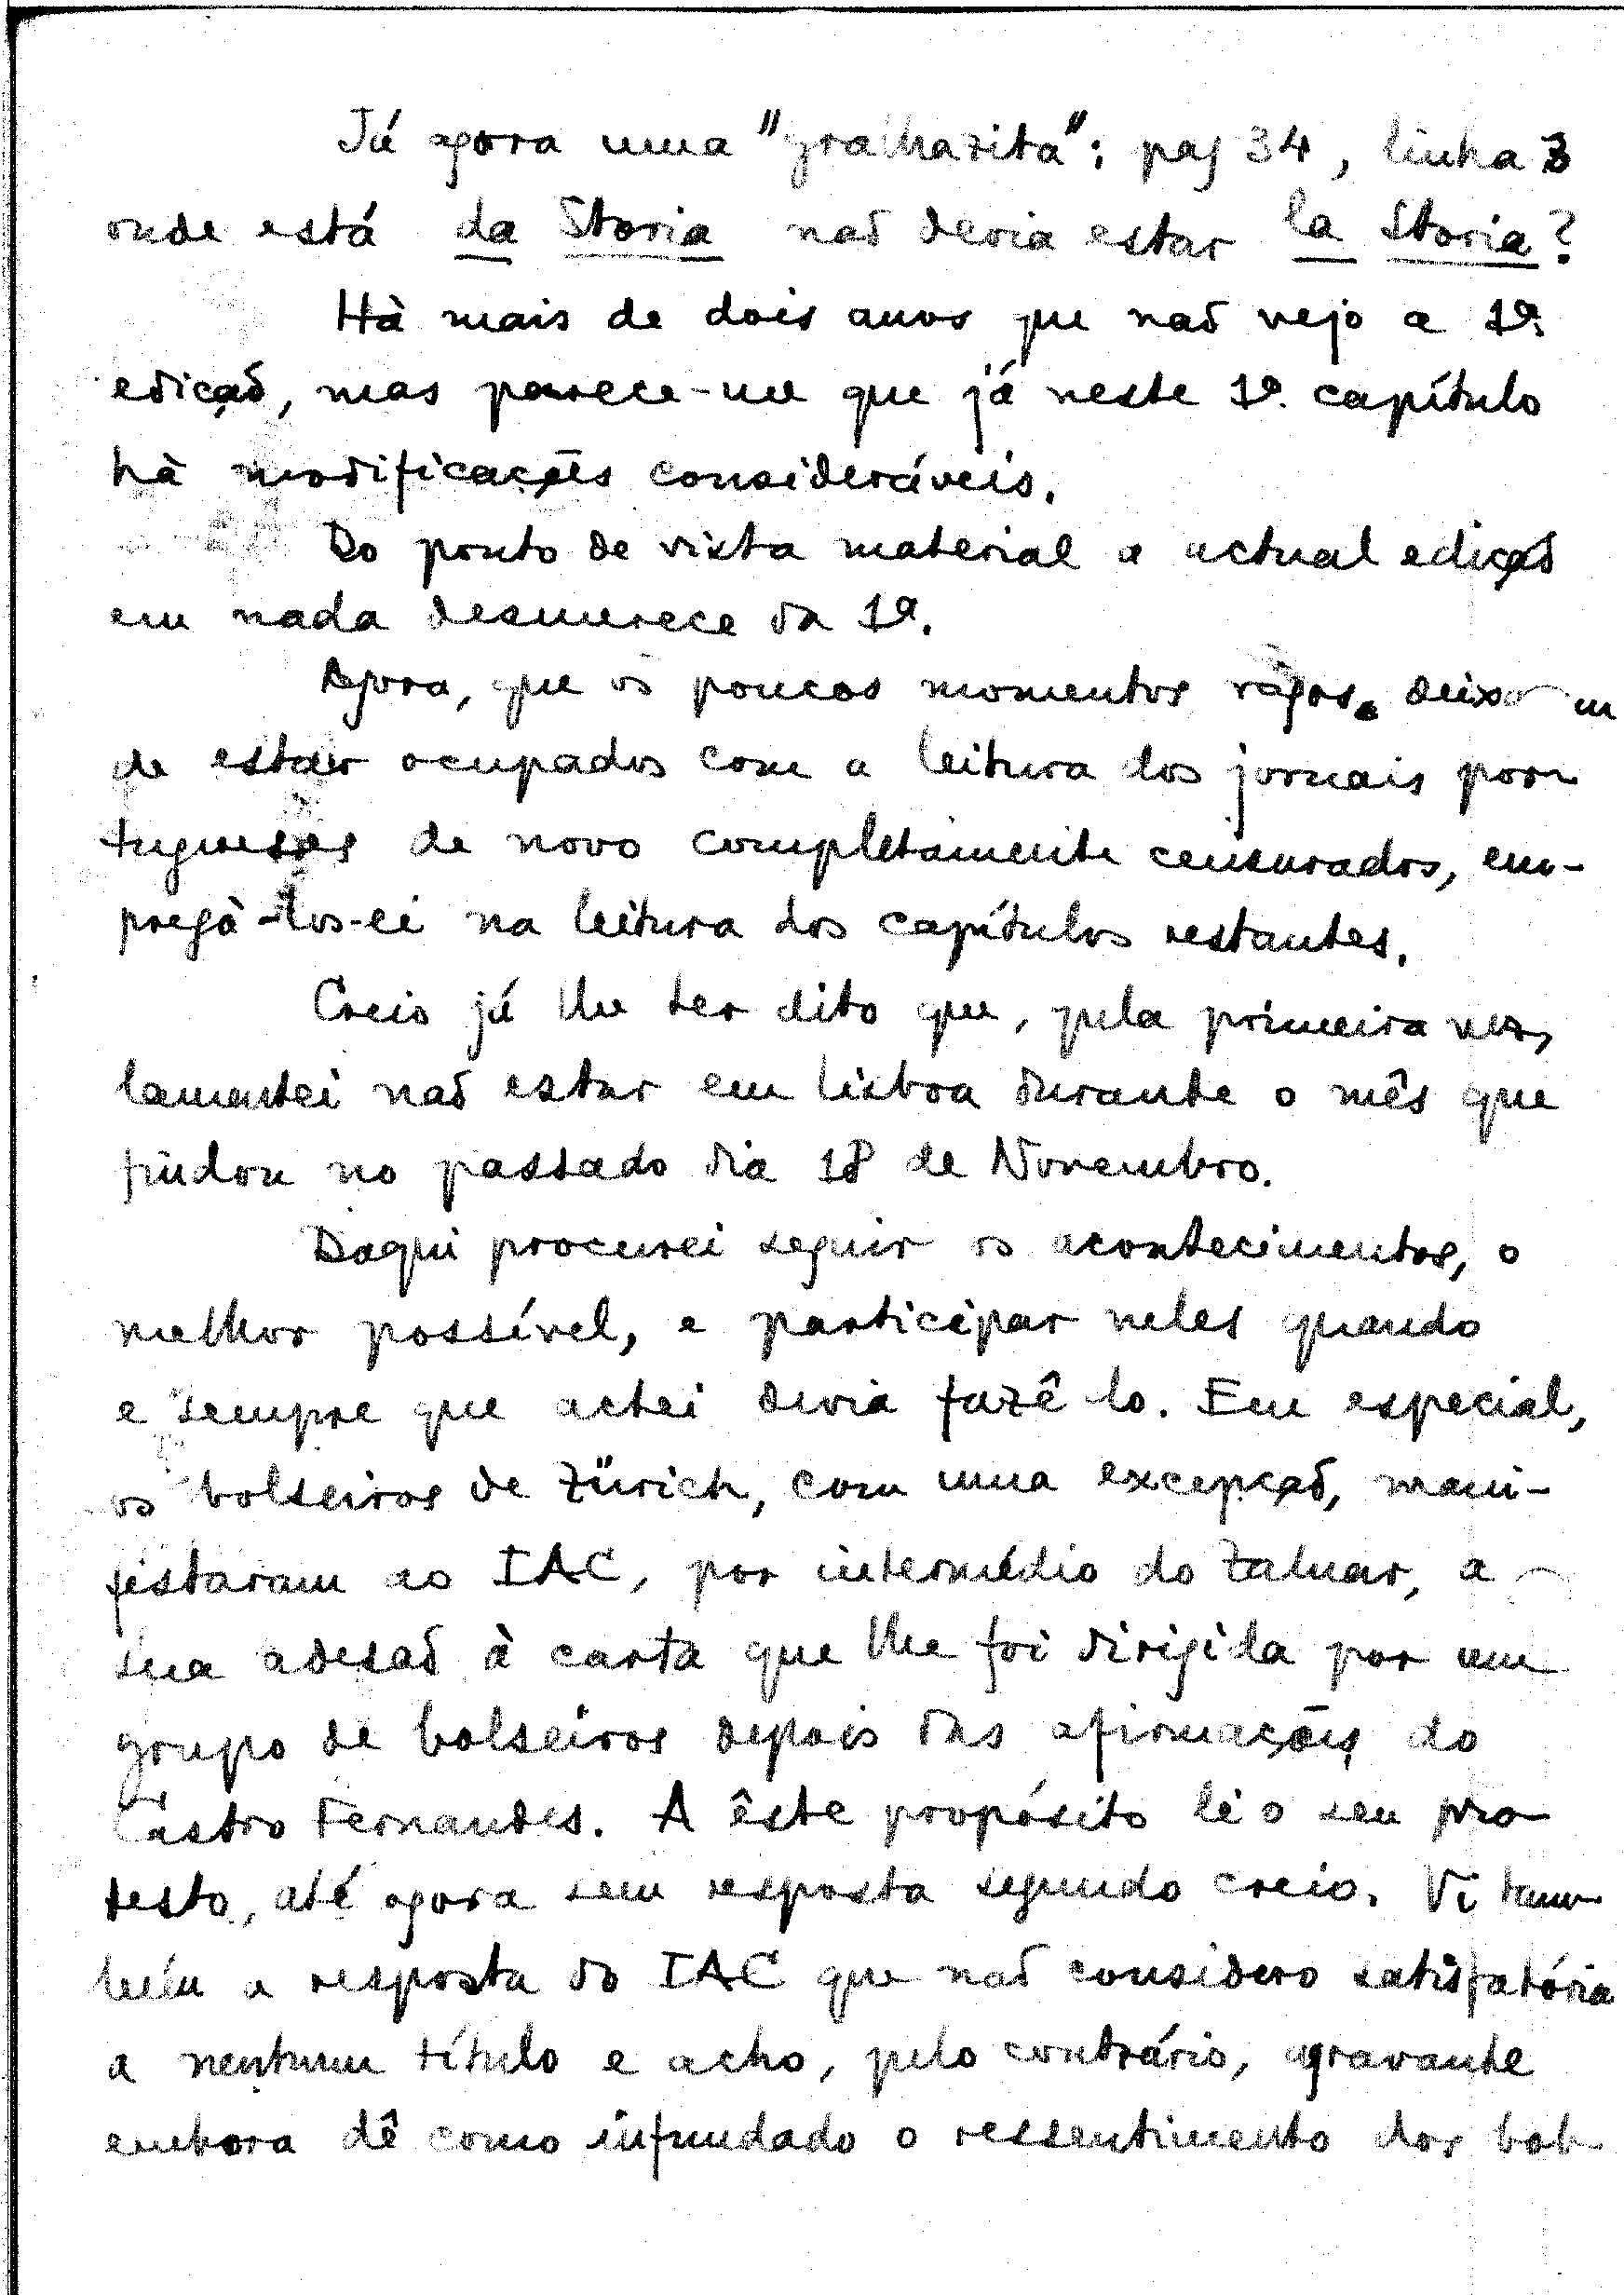 Já agora uma "gralhazita": pag 34, linha 3
onde está da Storia não devia estar la Storia?
Hà mais de dois anos que não vejo a 1ª.
edição, mas parece-me que já neste 1º. capítulo
hà modificações consideráveis.
Do ponto de vista material a actual edição
em nada desmerece da 1ª.
Agora, que os poucos momentos vàgos deixam
de estar ocupados com a leitura dos jornais por-
tugueses de novo completamente censurados, em-
pregà-los-ei na leitura dos capítulos restantes.
Creio já lhe ter dito que, pela primeira vez,
lamentei não estar em Lisboa durante o mês que
findou no passado dia 18 de Novembro.
Daqui procurei seguir os acontecimentos, o
melhor possível, e participar neles quando
e sempre que achei devia fazê lo. Em especial,
os bolseiros de Zürich, com uma excepção, mani-
festaram ao IAC, por intermédio do Zaluar, a
sua adesão à carta que lhe foi dirigida por um
grupo de bolseiros depois das afirmações do
Castro Fernandes. A êste propósito li o seu pro-
testo, até agora sem resposta segundo creio. Vi tam-
bém a resposta do IAC que não considero satisfatória
a nenhum título e acho, pelo contrário, agravante
embora dê como infundado o ressentimento dos bol-